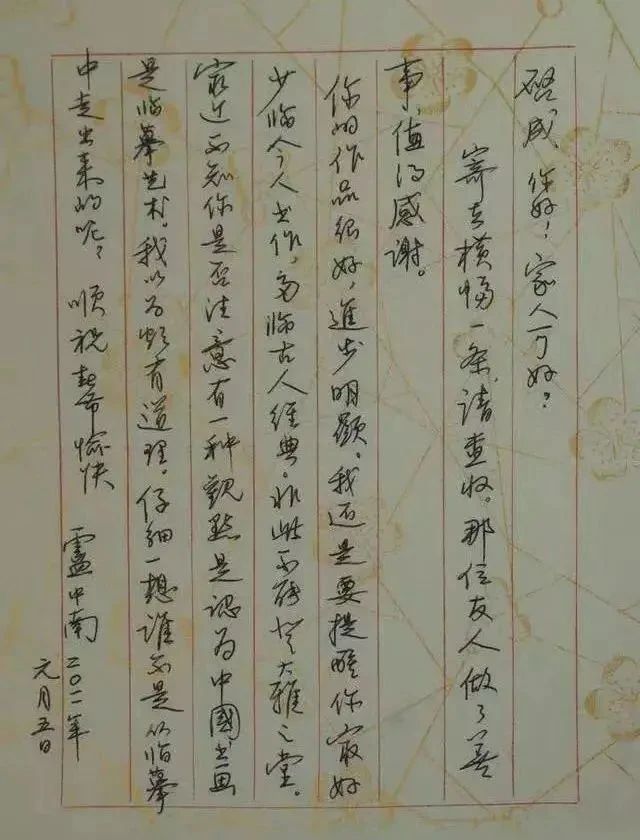 啓成 你好！家人可好？
寄去橫幅一条，请查收。那位友人做了善
事，值得感谢。
你的作品很好，進步明顯。我还是要提醒你最好
少临今人书作，多临古人经典。非此不能登大雅之堂。
最近不知你是否注意有一种觀點是认为中國书画
是临摹艺术。我以为颇有道理。仔细一想谁不是从临摹
中走出来的呢？ 顺祝 愉快 盧中南 二〇一一年
元月五日